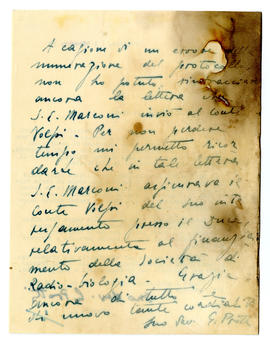 A cagione di un errore nella
numerazione del protocollo
non ho potuto rintracciare
ancora la lettera che
S.E. Marconi inviò al conte
Volpi. Per non perdere
tempo mi permetto ricor
darle che in tale lettera
S.E. Marconi assicurava il
conte Volpi del suo inte
ressamento presso il Duce
relativamente al finanzia
mento della Società di
Radio-biologia. Grazie
ancora di tutto e
di nuovo tante cordialità
Suo dev.